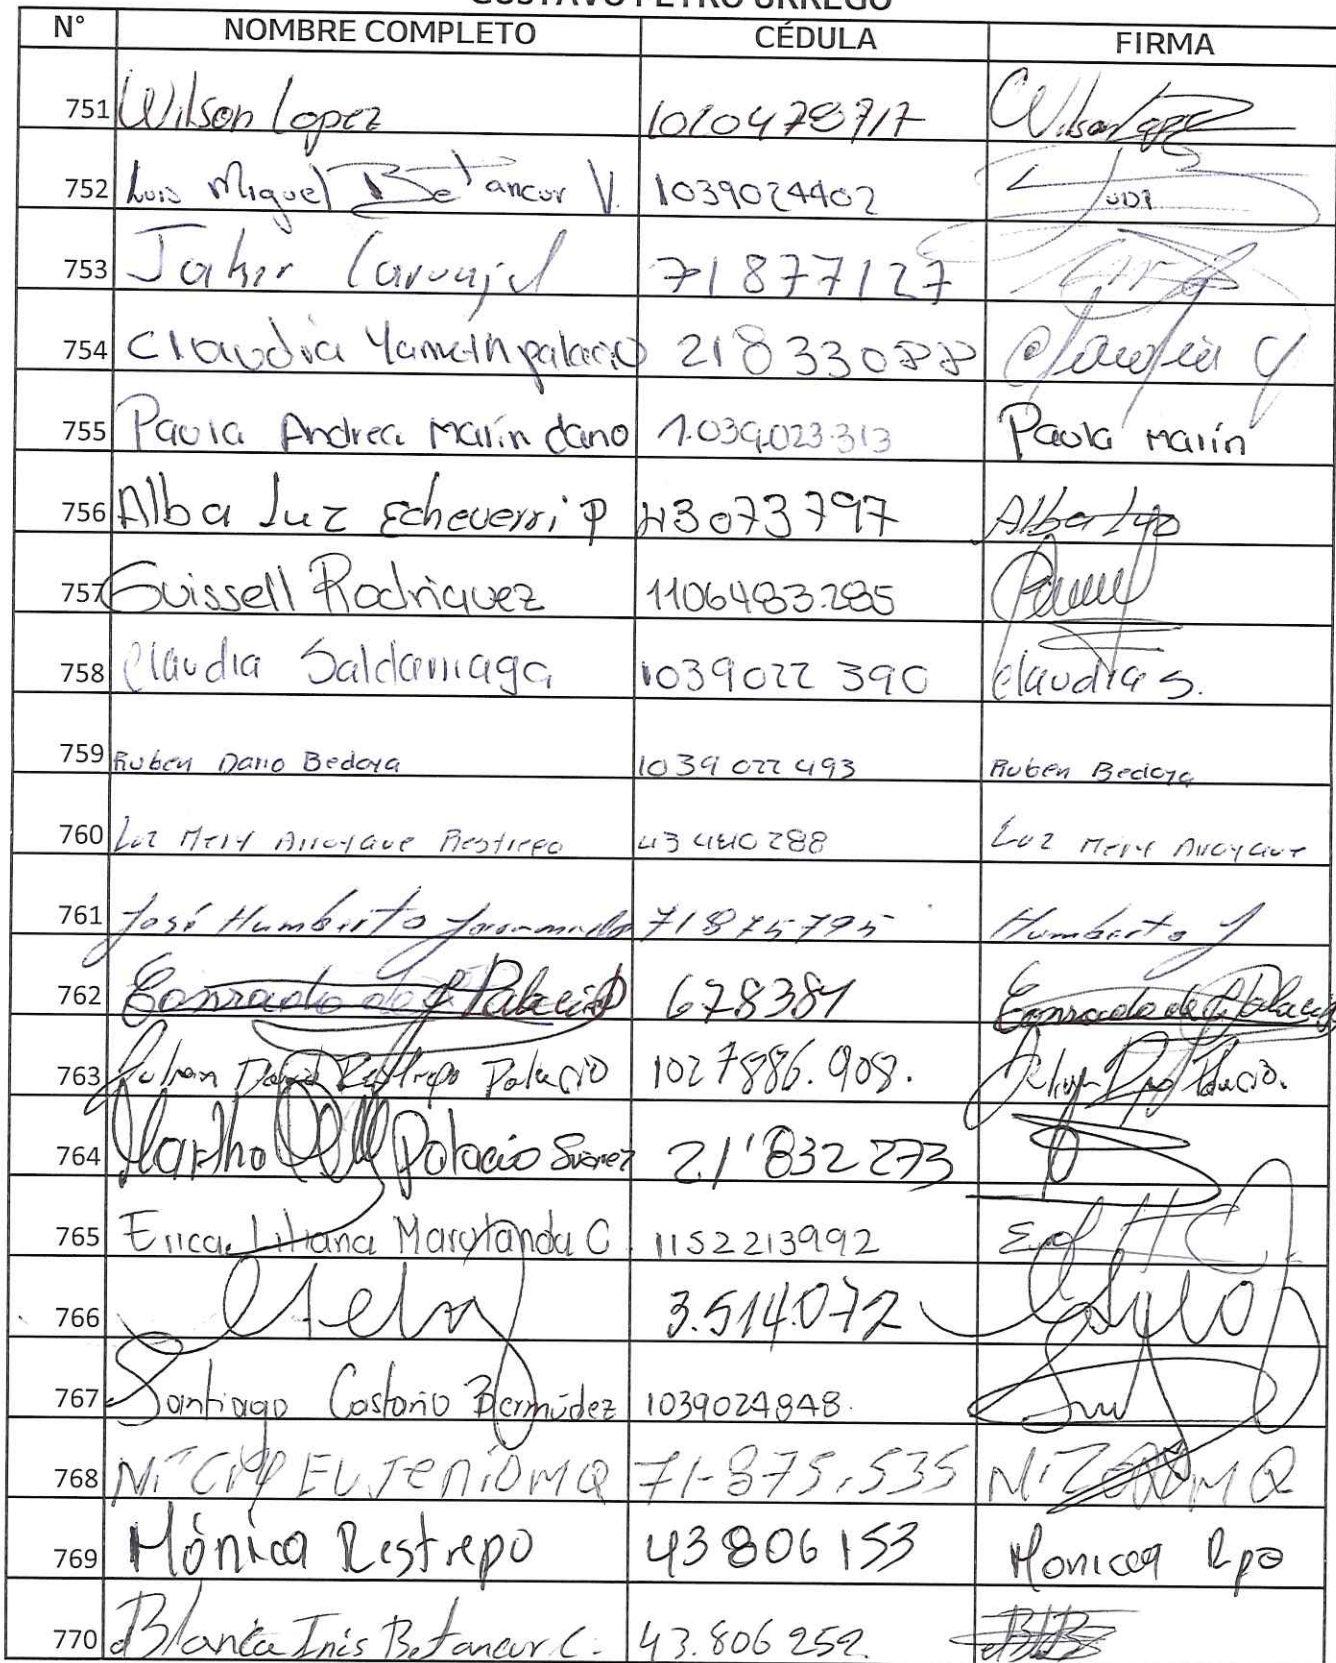 GUSTAVO PETRO URREGO
N° NOMBRE COMPLETO CÉDULA FIRMA
751 Wilson Lopez 1020478717 Wilson Lopez
752 Luis Miguel Betancur V. 1039024402
753 Jahir Carvajal 71877127
754 Claudia Yamein palacio 21833088 Claudia Y
755 Paula Andrea Marín cano 1.039.023.313 Paula Marín
756 Alba Luz Echeverri P 43073797 Alba Luz
757 Guissell Rodriguez 1106483.285
758 Claudia Saldarriaga 1039022 390 Claudia S.
759 Ruben Dario Bedoya 1039 022 493 Ruben Bedoya
760 Luz Mery Arroyave Restrepo 43 440 288 Luz Mery Arroyave
761 José Humberto Jaramillo 71875795 Humberto J
762 Conrado de J Palacio 678381 Conrado de J Palacio
763 Julian David Restrepo Palacio 1027886.908. Palacio.
764 Martha Palacio Suarez 21'832273
765 Erica Liliana Marulanda C 1152213992
766 3.514.072
767 Santiago Castaño Bermúdez 1039024848.
768 71-875.535
769 Mónica Restrepo 43806153 Monica Rpo
770 Blanca Inis Betancur C. 43.806 252.